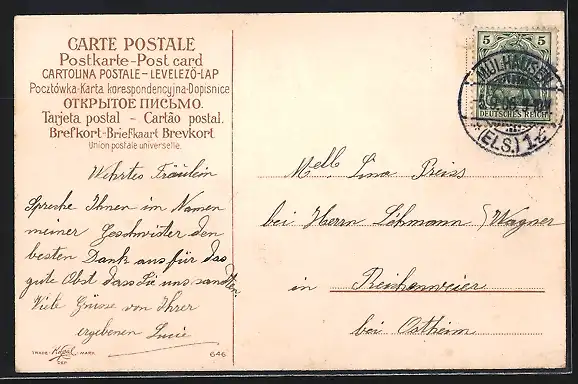 CARTE POSTALE
Postkarte-Post card
CARTOLINA POSTALE-LEVELEZŐ-LAP
Pocztówka-Karta korespondencyjna-Dopisnice
ОТКРЫТОЕ ПИСЬМО.
Tarjeta postal - Cartão postal.
Brefkort-Briefkaart Brevkort
Union postale universelle.
Wehrtes Fräulein
Spreche Ihnen im Namen
meiner Geschwister den
besten Dank aus für das
gute Obst dass Sie uns sandten
Viele Grüsse von Ihrer
ergebenen Lucie
TRADE MARK
DEP.
646
5 5
DEUTSCHES REICH
MÜLHAUSEN
(ELS.) 1
Mell. Lina Preiss
bei Herrn Löhmann, Wagner
in Reichenweier
bei Ostheim